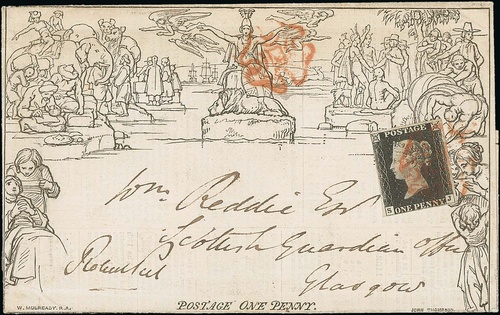 POSTAGE
S J
ONE PENNY
Wm Reddie Esq
Scottish Guardian Office
Glasgow
POSTAGE ONE PENNY.
W. MULREADY. R.A.
JOHN THOMPSON.